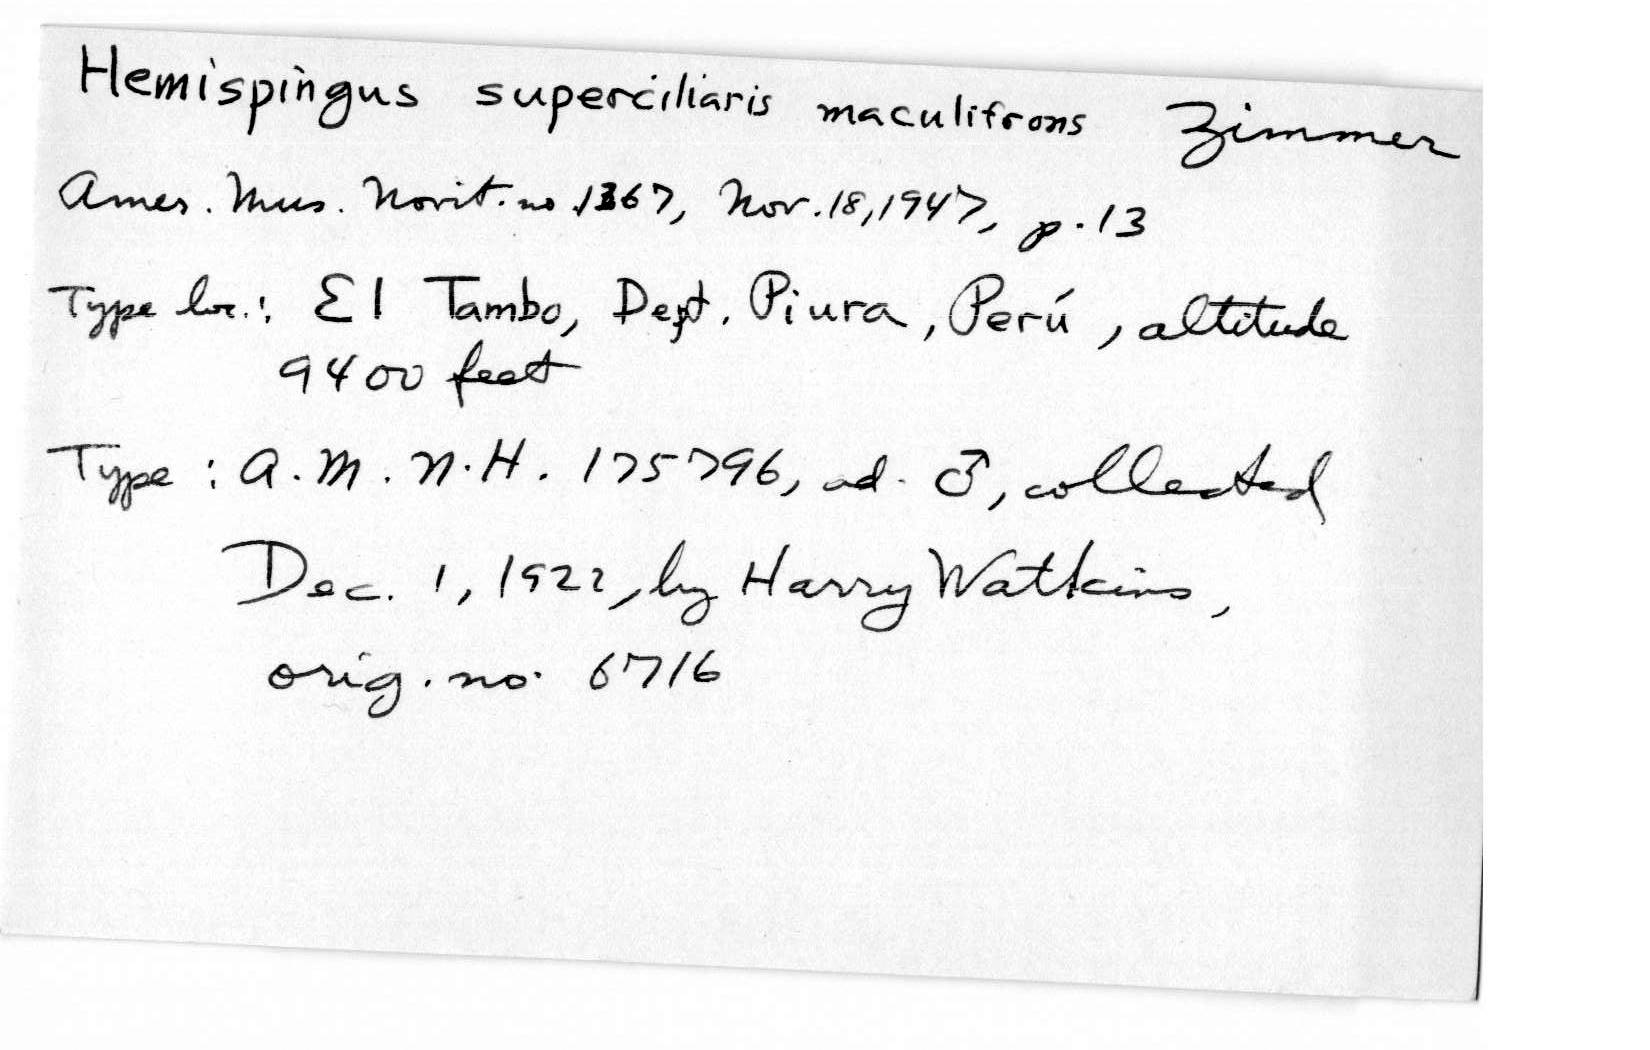 Hemispingus superciliaris maculifrons Zimmer
Amer. Mus. Novit. no. 1367, Nov. 18, 1947, p. 13
Type loc.: El Tambo, Dept. Piura, Perú, altitude
9400 feet
Type: A.M.N.H. 175796, ad. ♂, collected
Dec. 1, 1922, by Harry Watkins,
orig. no. 6716